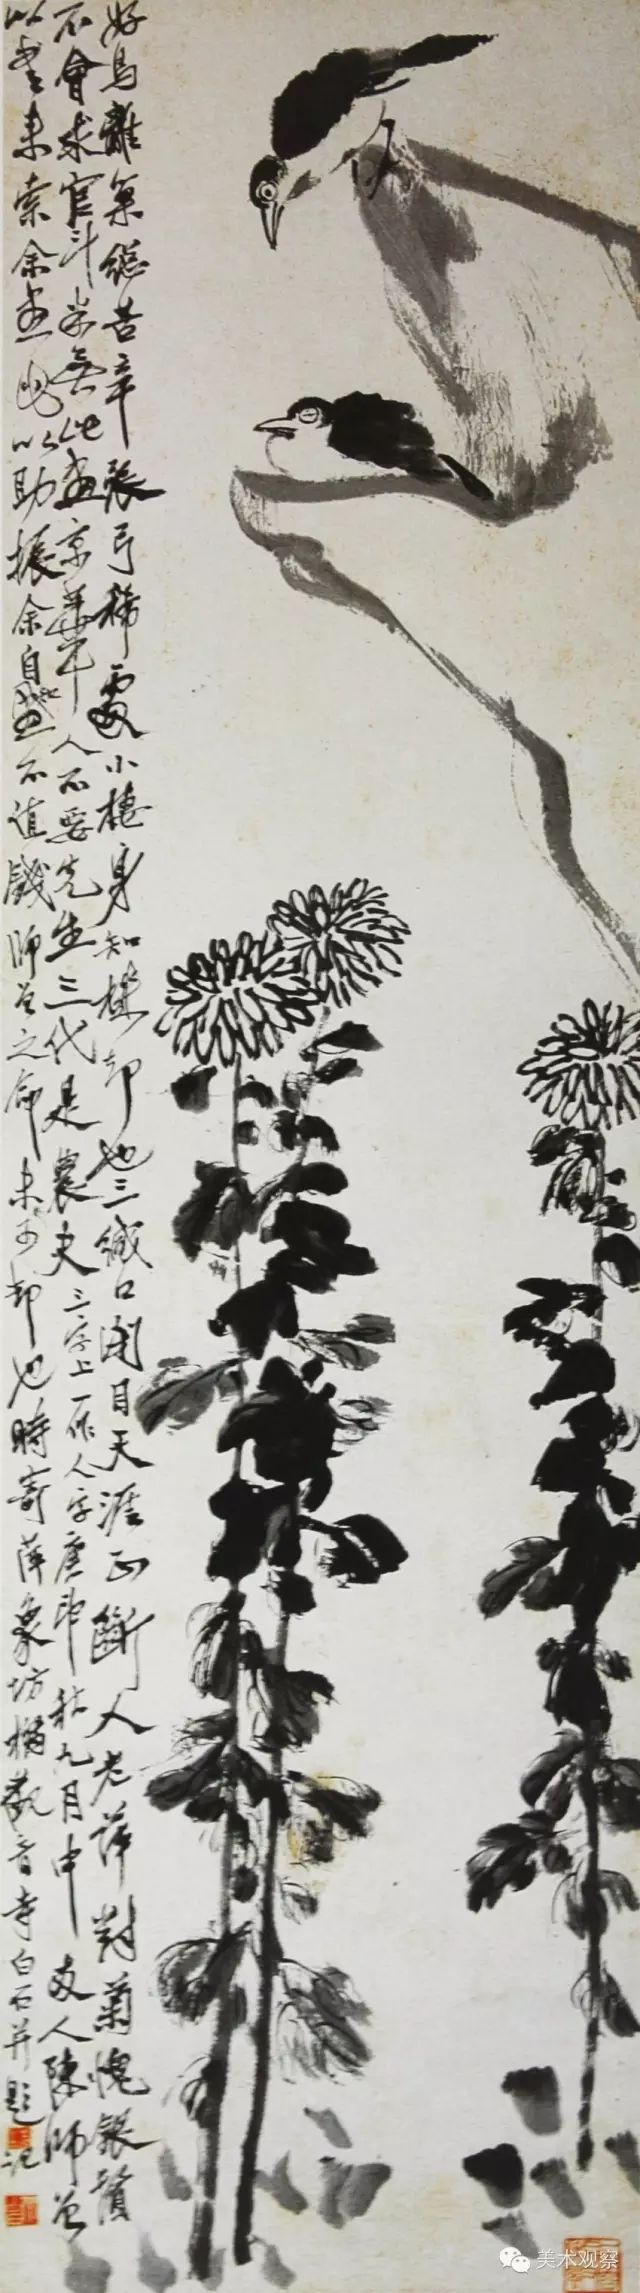 好鳥離巢總苦辛張弓稀處小棲身知機却也三緘口閉目天涯正斷人老萍對菊愧銀鬚
不會求官斗米無此畫京華人不要先生三代是農夫三字上一作人字庚申秋九月中友人陳師曾
以書來索余畫以助振余自畫不值錢師曾之命未可却也時寄萍象坊橋觀音寺白石并題記
美术观察